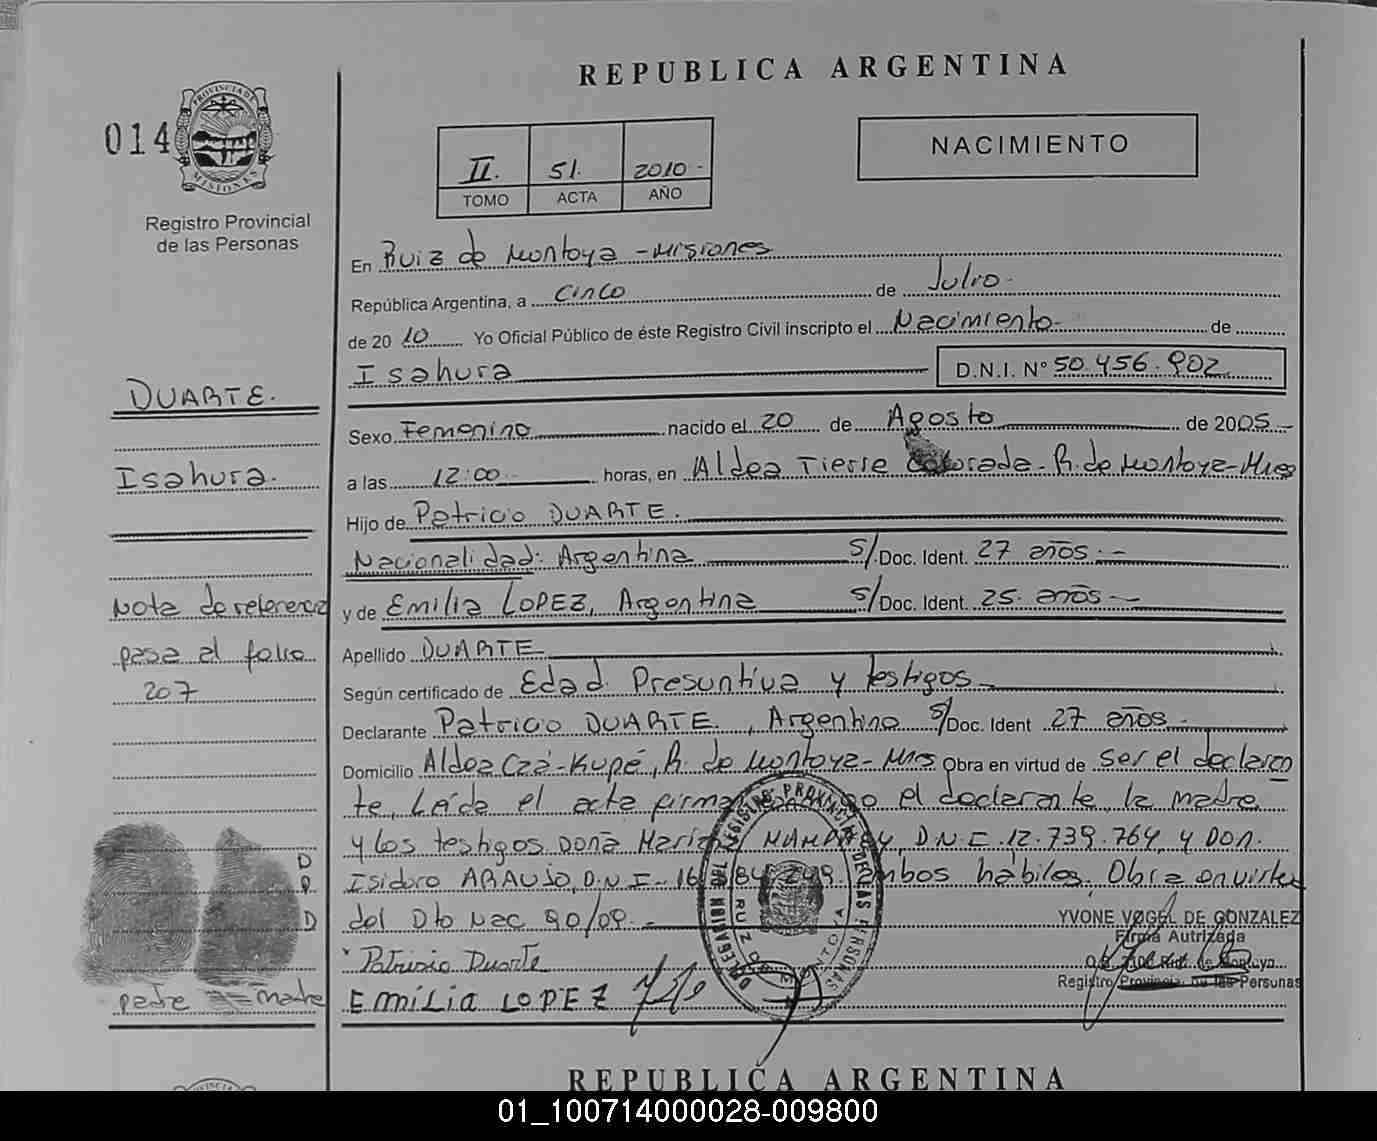 REPUBLICA ARGENTINA
014
PROVINCIA DE
MISIONES
Registro Provincial
de las Personas
II. 51. 2010-
TOMO ACTA AÑO
NACIMIENTO
En Ruiz de Montoya - Misiones
República Argentina, a cinco de Julio-
de 20 10 Yo Oficial Público de éste Registro Civil inscripto el Nacimiento de
Isahura D.N.I. N° 50.456.902
DUARTE.
Isahura.
Sexo Femenino nacido el 20 de Agosto de 2005-
a las 12:00 horas, en Aldea Tierra Colorada-R. de Montoya-Mnes
Hijo de Patricio DUARTE.
Nacionalidad: Argentina S/Doc. Ident. 27 años.-
y de Emilia LOPEZ, Argentina S/Doc. Ident. 25 años-
Nota de referencia
pasa al folio
207
Apellido DUARTE
Según certificado de Edad Presuntiva y testigos-
Declarante Patricio DUARTE., Argentino S/Doc. Ident 27 años-
Domicilio Aldea Kupé, R. de Montoya-Mnes Obra en virtud de ser el declaran
te, Leída el acta el declarante la madre
y los testigos Doña D.N.I. 12.739.764, y DON.
Isidoro ARAUJO, D.N.I- 16 hábiles. Obra en virtud
del Dto Nac 90/09.-
Patrisio Duarte
EMiLiA LOPEZ
D
D
padre madre
DELEGACION DEL REGISTRO PROVINCIAL DE LAS PERSONAS
YVONE VOGEL DE GONZALEZ
Firma Autrizada
Registro Provincial de las Personas
REPUBLICA ARGENTINA
01_100714000028-009800